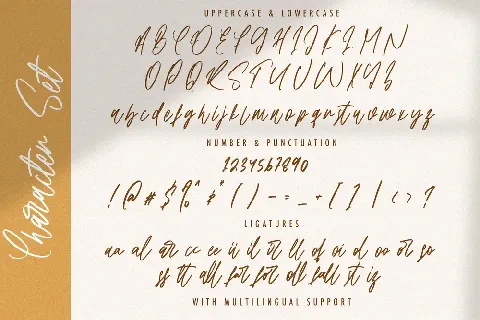 Character Set
UPPERCASE & LOWERCASE
ABCDEFGHIJKLMN
OPQRSTUVWXYZ
abcdefghijklmnopqrstuvwxyz
NUMBER & PUNCTUATION
1234567890
! @ # $ % ^ & * ( ) - = _ + [ ] / \ < > ?
LIGATURES
aa al ar cc ee ii il it ll of oi ol oo or so
ss tt all for for oll fall st is
WITH MULTILINGUAL SUPPORT